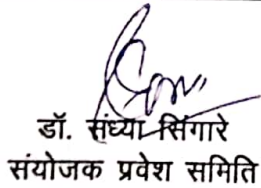 डॉ. संध्या सिंगारे
संयोजक प्रवेश समिति